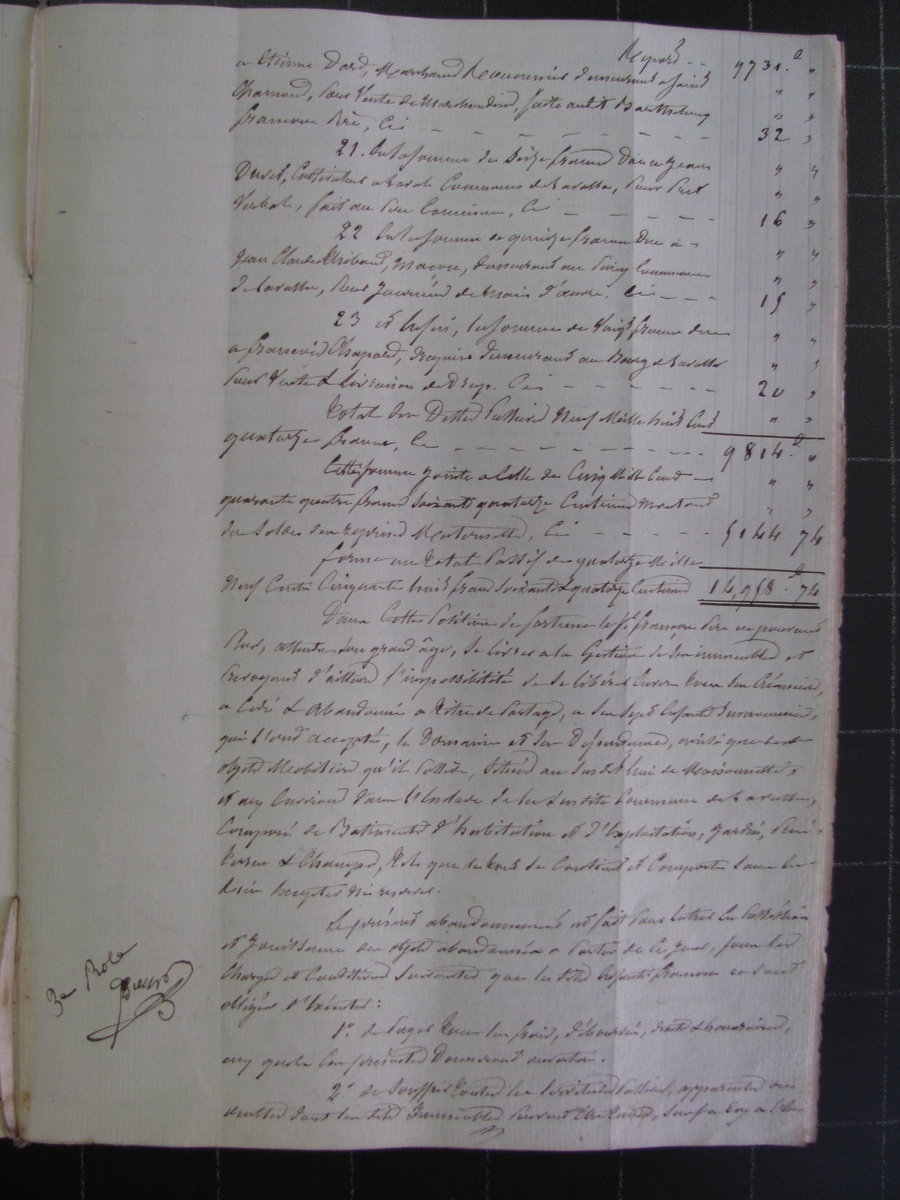 Report - - 9731. "
a Etienne Dard, Marchand Rouennier demeurant a Saint
Chamond, pour Vente de Marchandises, faite audit Barthelemy
francon Père, Ci - - - - - - - - 32 "
21. La somme de Seize francs Due a Jean
Duret, Cultivateur a Commune de pour Prêt
Verbal, fait au Sieur Ci - - - - - 16 "
22 La somme de quinze francs Due a
Jean Claude Thibaud, Maçon, demeurant au Commune
de pour journées de Main d'œuvre. Ci - - - 15 "
23 et Enfin, la somme de Vingt francs due
a francois Chapard, demeurant au Bourg de
pour Vente & Livraison de Drap. Ci - - - - - 20 "
Total des Dettes Passives Neuf Mille huit Cent
quatorze francs, Ci - - - - - - - - 9814. "
Cette somme jointe a Celle de Cinq Mille Cent
quarante quatre francs soixante quatorze Centimes Montant
du Solde des reprises Maternelles, Ci - - - - - - 5144 74
forme un Total Passif de quatorze Mille
Neuf Cents Cinquante huit francs soixante & quatorze Centimes 14,958. 74
Dans Cette Position de fortune le Sr francon Père ne pouvant
Plus, attendu son grand âge, se livrer a la Gestion de ses immeubles et
Prevoyant d'ailleurs l'impossibilité de se libérer envers tous ses Créanciers,
a Cédé & Abandonné a titre de Partage, a ses sept Enfants susnommés,
qui l'ont accepté, le Domaine et ses Dépendances, ainsi que les
objets Mobiliers qu'il Possède, situés au lieu de Maisonnette,
et aux environs dans l'Etendue de la susdite Commune de
Composé de Batiments d'habitation et d'Exploitation, Jardin, Prés,
Terres & Champs, tels que le tout se Contient et Comporte sans en
Rien Excepter Ni réserver.
Le présent abandonnement est fait Pour Entrer en Possession
et Jouissance des objets abandonnés a Partir de Ce jour, sous les
Charges et Conditions suivantes que les dits Enfants francon se sont
obligés d'Exécuter:
1° de Payer tous les frais, déboursés, droits & honoraires,
aux quels Ces présentes Donneront ouverture.
2° de Souffrir toutes les Servitudes Passives, apparentes ou
occultes dont les dits Immeubles Peuvent être tenus, sauf a Eux a s'en
3e Role